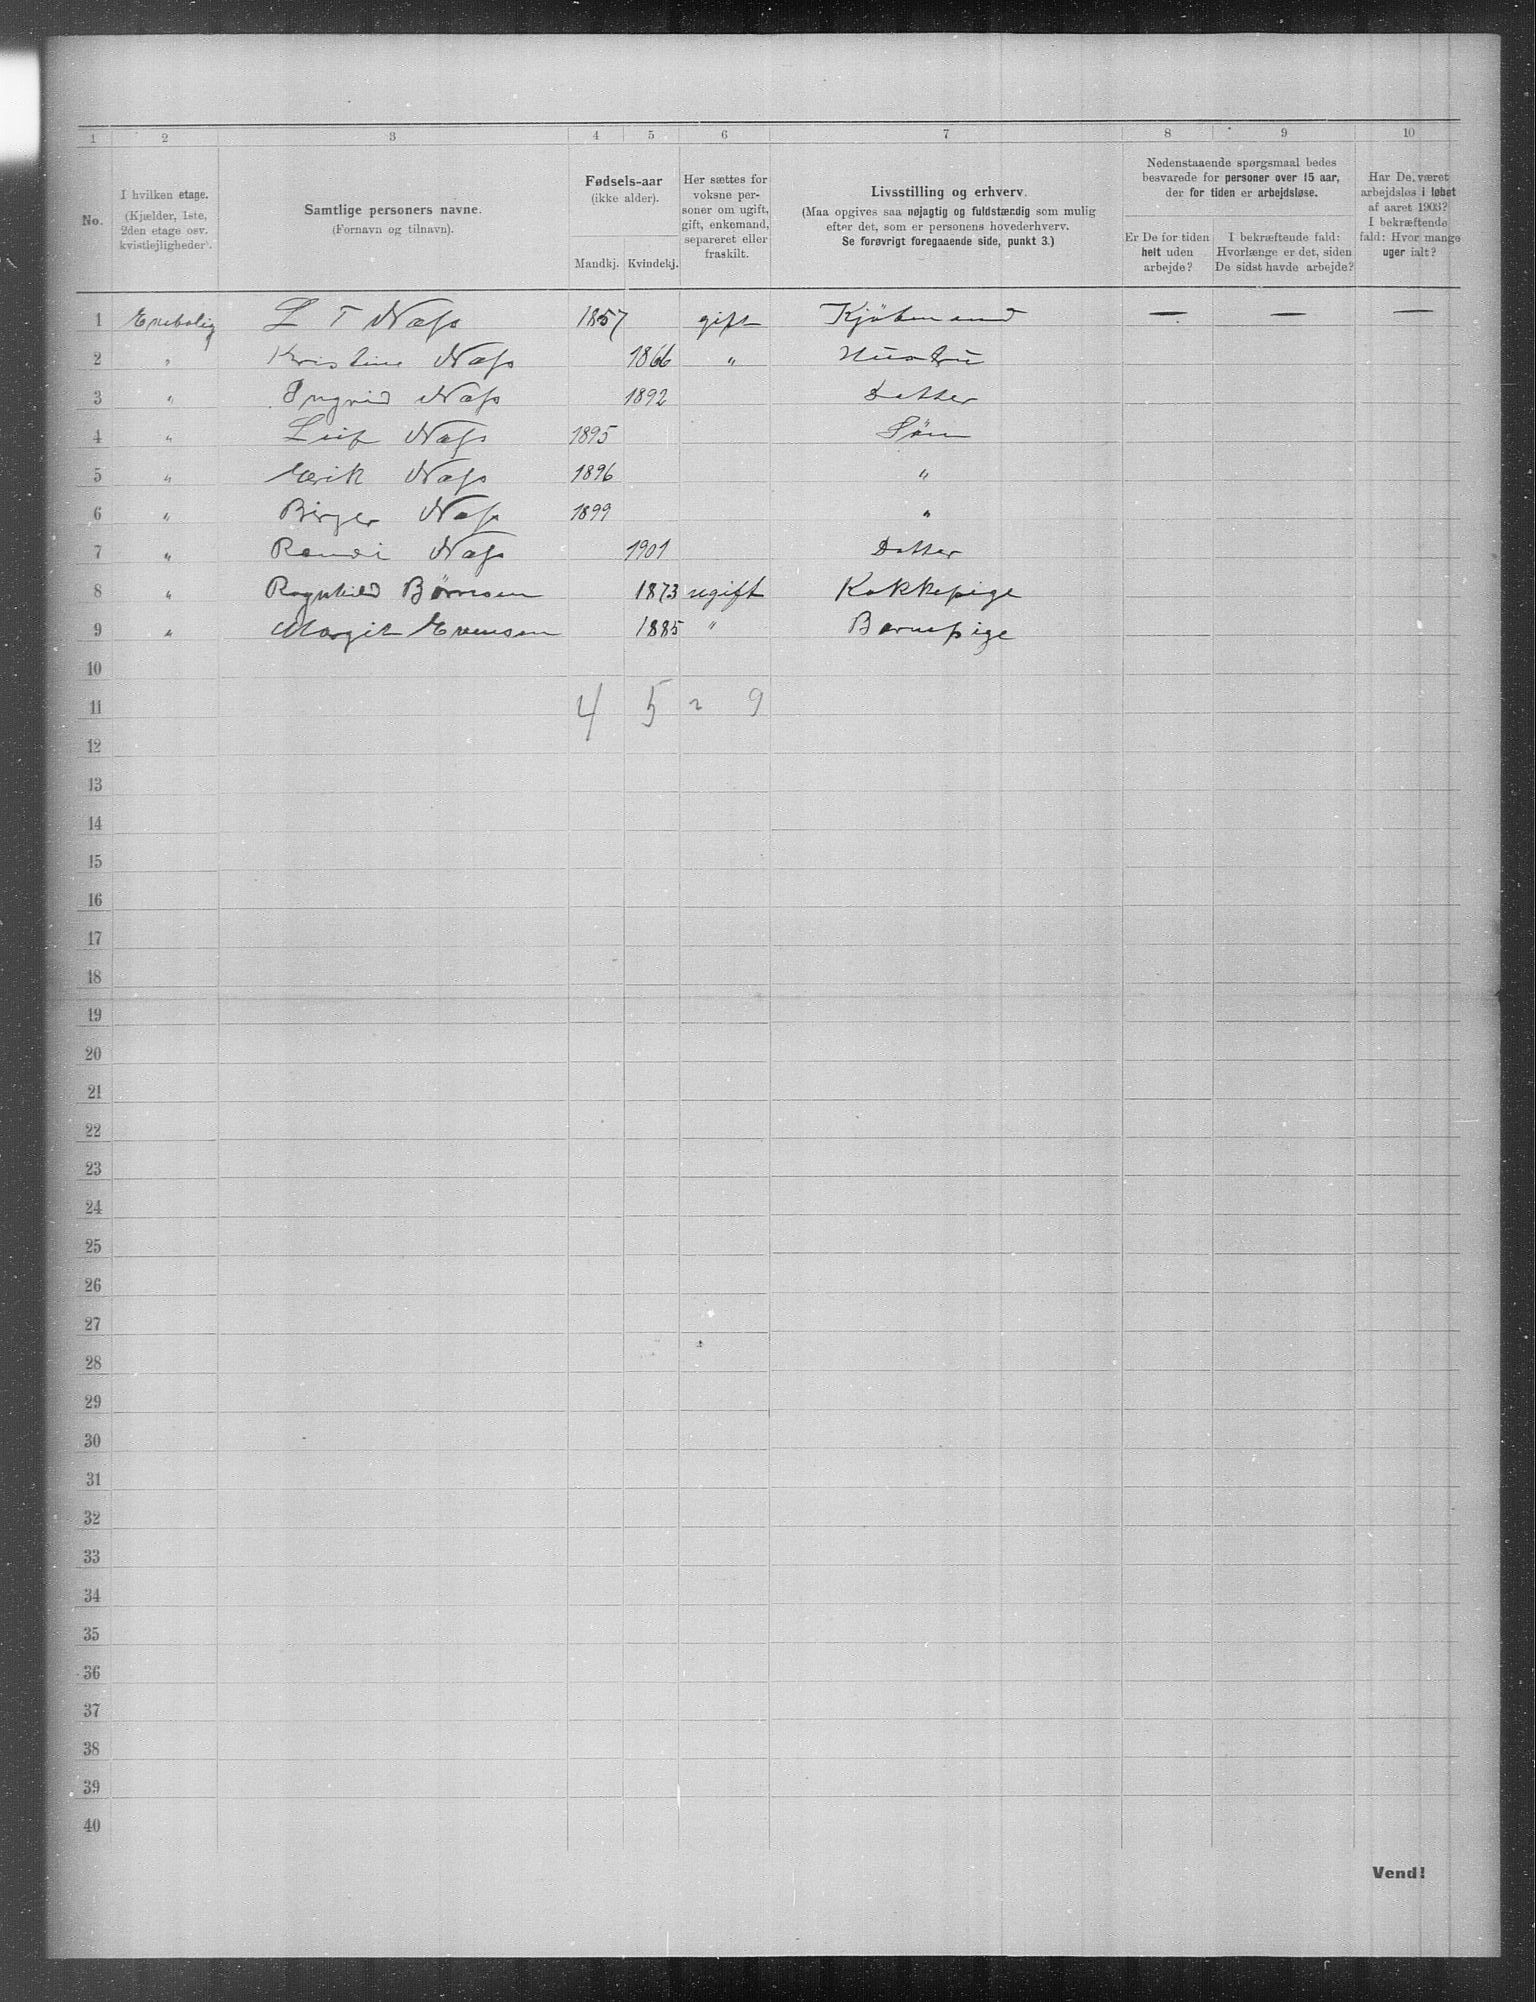 1 2 3 4 5 6 7 8 9 10
No.
I hvilken etage.
(Kjælder, 1ste,
2den etage osv.
kvistlejligheder).
Samtlige personers navne.
(Fornavn og tilnavn).
Fødsels-aar
(ikke alder).
Mandkj. Kvindekj.
Her sættes for
voksne per-
soner om ugift,
gift, enkemand,
separeret eller
fraskilt.
Livsstilling og erhverv.
(Maa opgives saa nøjagtig og fuldstændig som mulig
efter det, som er personens hovederhverv.
Se forøvrigt foregaaende side, punkt 3.)
Nedenstaaende spørgsmaal bedes
besvarede for personer over 15 aar,
der for tiden er arbejdsløse.
Er De for tiden
helt uden
arbejde?
I bekræftende fald:
Hvorlænge er det, siden
De sidst havde arbejde?
Har De været
arbejdsløs i løbet
af aaret 1903?
I bekræftende
fald: Hvor mange
uger ialt?
1 Enebolig L T Næss 1857 gift Kjöbmand — — —
2 " Kristine Næss 1866 " Hustru
3 " Ingrid Næss 1892 Datter
4 " Leif Næss 1895 Sön
5 " Erik Næss 1896 "
6 " Birger Næss 1899 "
7 " Randi Næss 1901 Datter
8 " Ragnhild Børresen 1873 ugift Kokkepige
9 " Margit Evensen 1885 " Barnepige
10
11 4 5 = 9
12
13
14
15
16
17
18
19
20
21
22
23
24
25
26
27
28
29
30
31
32
33
34
35
36
37
38
39
40
Vend!